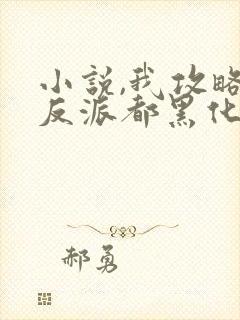 小説,我攻略
反派都黑化
郝勇